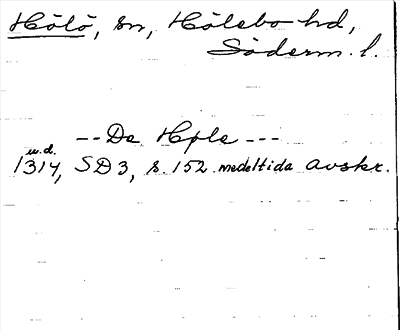 Hölö, sn, Hölebo hd,
Söderm. l.
-- De Hþle ---
u.d.
1314, SD 3, s. 152 medeltida avskr.